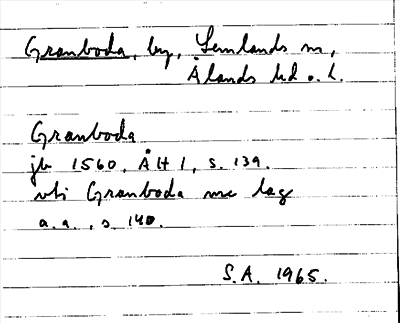 Granboda, by, Lemlands sn,
Ålands hd o. L.
Granboda
jb 1560, ÅH 1, s. 139.
uti Granboda me lag
a.a., s. 140.
S.A. 1965.